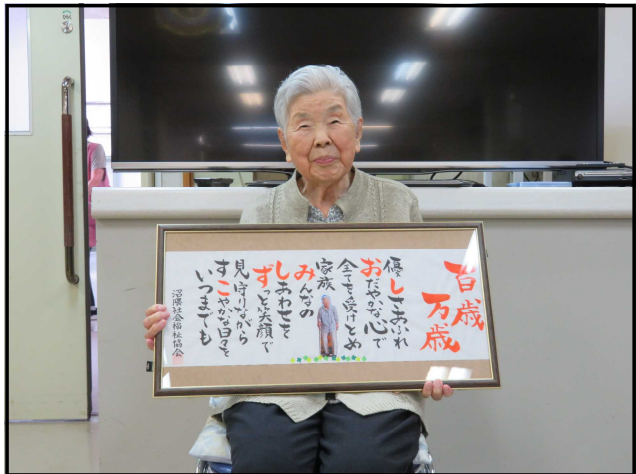 百歳
万歳
優しさあふれ
おだやかな心で
全てを受けとめ
家族
みんなの
しあわせを
ずっと笑顔で
見守りながら
すこやかな日々を
いつまでも
沼隈社会福祉協会